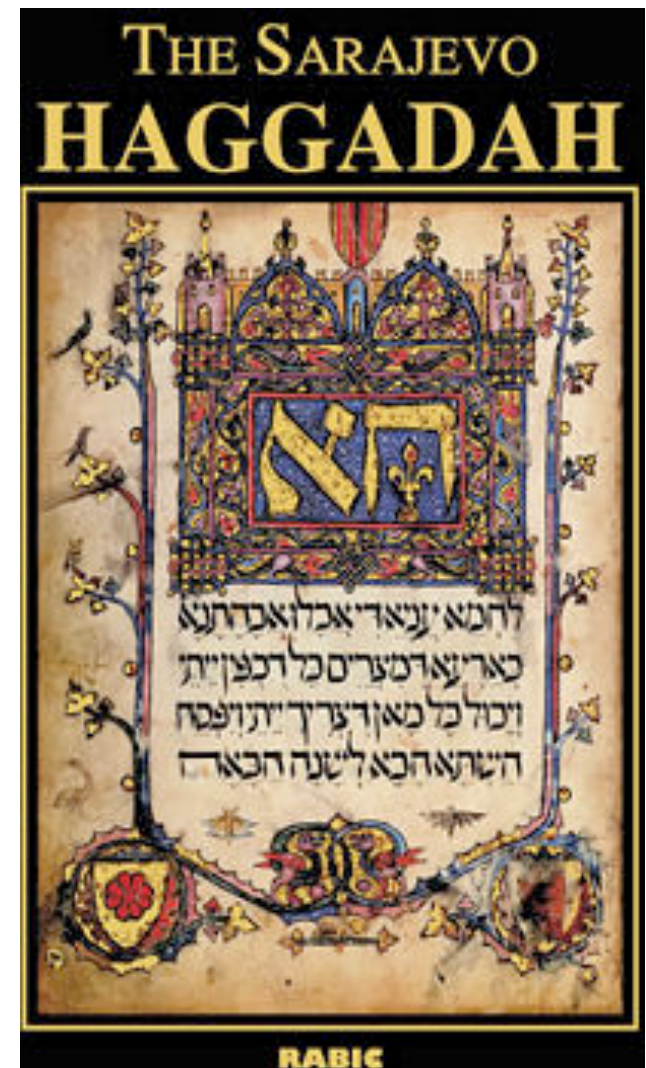 THE SARAJEVO
HAGGADAH
הא
לחמא עניא די אכלו אבהתנא
בארעא דמצרים כל דכפין ייתי
ויכול כל מאן דצריך ייתי ויפסח
השתא הכא לשנה הבאה
RABIC